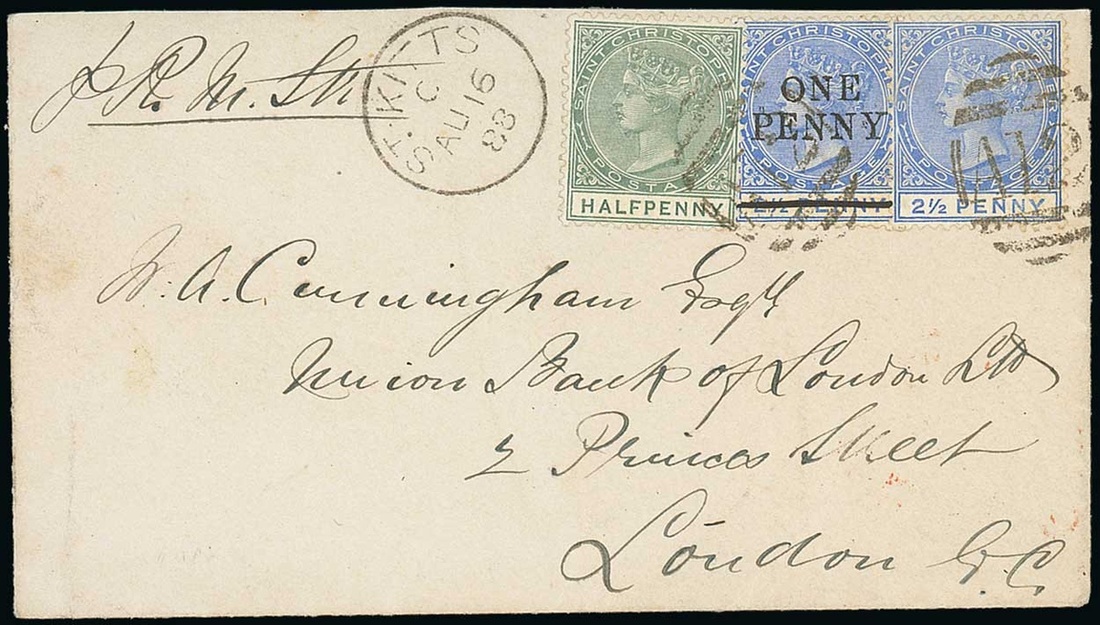 ST. KITTS
C
AU 16
88
SAINT CHRISTOPH
POSTAGE
HALFPENNY
SAINT CHRISTOPH
ONE
PENNY
POSTAGE
2½ PENNY
SAINT CHRISTOPH
POSTAGE
2½ PENNY
A12
p R. M. Str
W. A. Cunningham Esqr
Union Bank of London Ltd
2 Princes Street
London E.C.